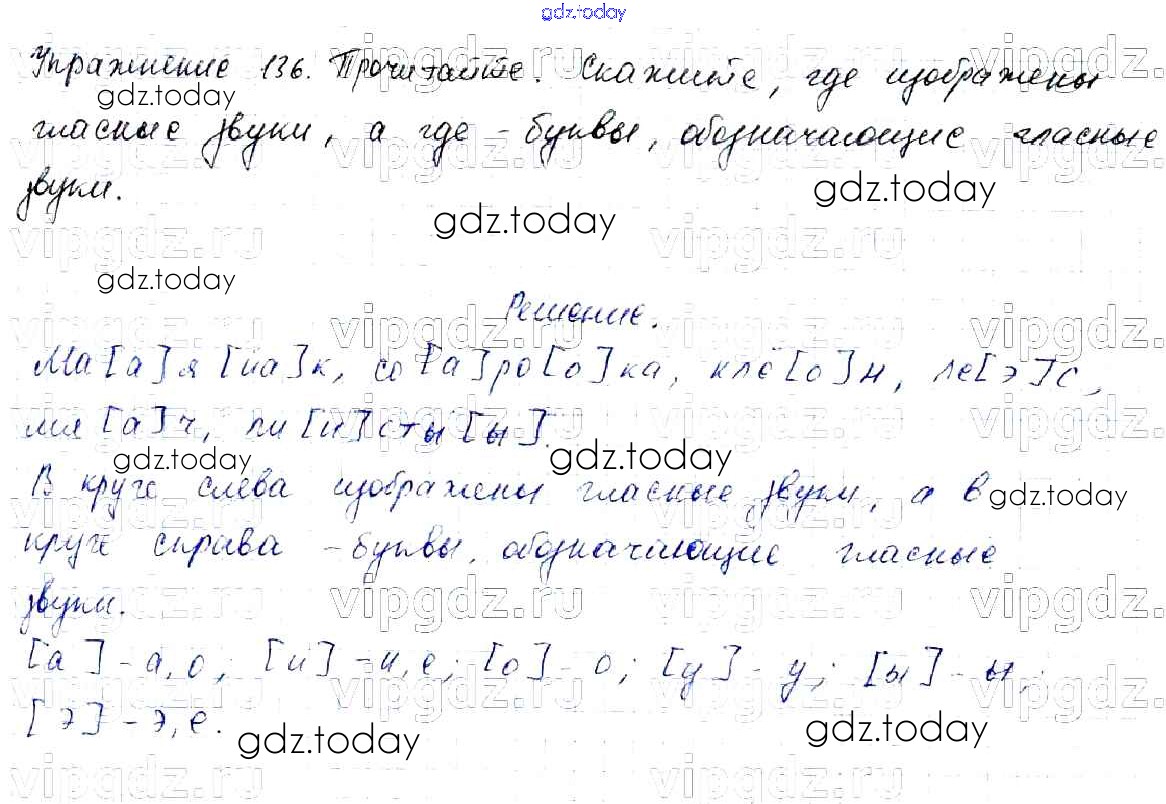 gdz.today
Упражнение 136. Прочитайте. Скажите, где изображены
gdz.today
гласные звуки, а где - буквы, обозначающие гласные
звуки.
gdz.today
gdz.today
gdz.today
Решение.
Ма[а]я[йа]к, со[а]ро[о]ка, клё[о]н, ле[э]с,
мя[а]ч, ли[и]сты[ы].
gdz.today
gdz.today
В круге слева изображены гласные звуки, а в
gdz.today
круге справа - буквы, обозначающие гласные
звуки.
[а] - а, о; [и] - и, е; [о] - о; [у] - у; [ы] - ы;
[э] - э, е.
gdz.today
gdz.today
vipgdz.ru